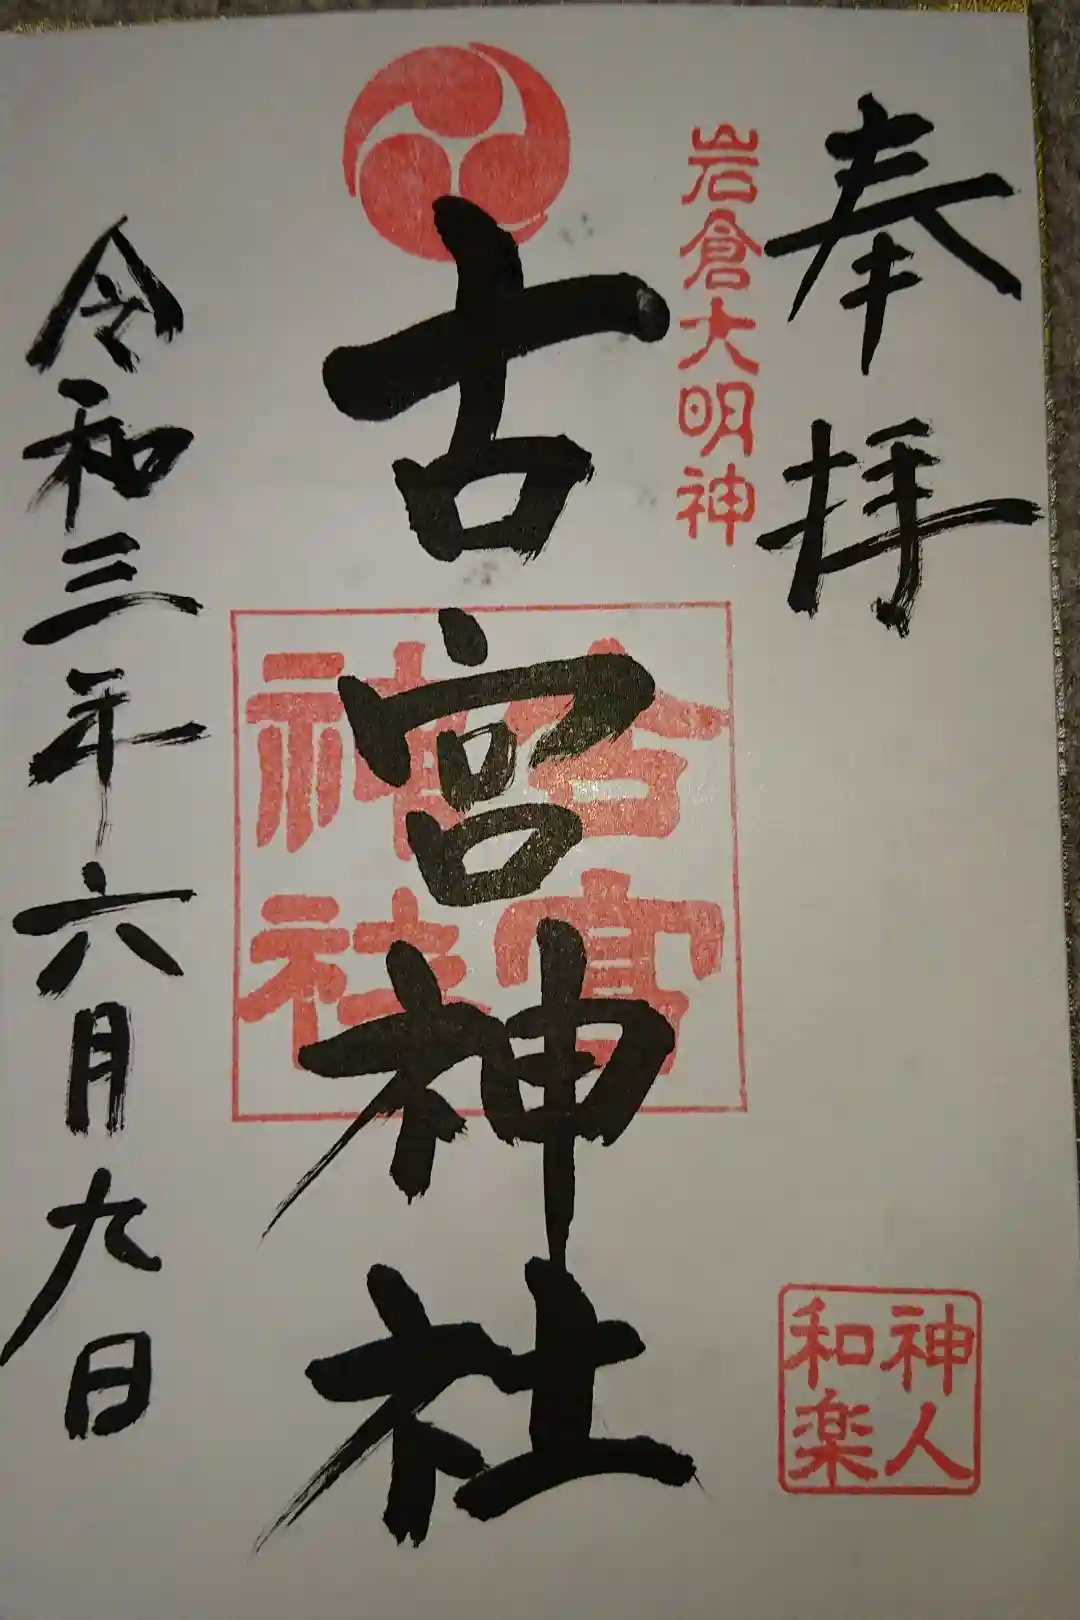 奉拝
岩倉大明神
古宮神社
古宮
神社
神人
和楽
令和三年六月九日